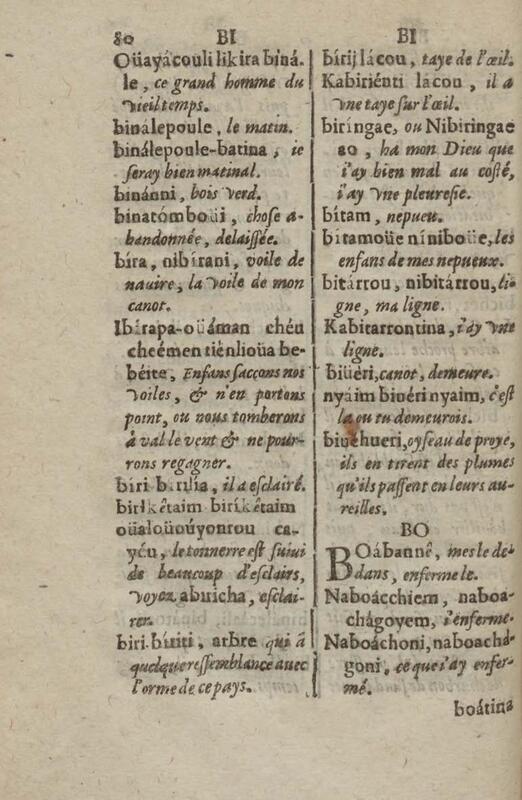 80 BI
Oüayácouli likira biná-
le, ce grand homme du
vieil temps.
binálepoule, le matin.
binálepoule-batina, ie
seray bien matinal.
binánni, bois verd.
binatómboüi, chose a-
bandonnée, delaissée.
bíra, nibírani, voile de
nauire, la voile de mon
canot.
Ibírapa-oüáman chéu
cheémen tiénlioüa be-
béite, Enfans sacçons nos
voiles, & n'en portons
point, ou nous tomberons
à val le vent & ne pour-
rons regagner.
biri birilia, il a esclairé.
birikêtaim biríkêtaim
oüaloüoúyonrou ca-
yéu, le tonnerre est suiui
de beaucoup d'esclairs,
voyez abiricha, esclai-
rer.
biri biriti, arbre qui à
quelque ressemblance auec
l'orme de ce pays.
BI
bírij lácou, taye de l'œil.
Kabiriénti lacou, il a
vne taye sur l'œil.
biringae, ou Nibiringae
ao, ha mon Dieu que
i'ay bien mal au costé,
i'ay vne pleuresie.
bítam, nepueu.
bitamoüe níniboüe, les
enfans de mes nepueux.
bitárrou, nibitárrou, li-
gne, ma ligne.
Kabitarrontina, i'ay vne
ligne.
biüéri, canot, demeure.
nyáim biuéri nyaim, c'est
la ou tu demeurois.
biuehueri, oyseau de proye,
ils en tirent des plumes
qu'ils passent en leurs au-
reilles.
BO
BOábannê, mes le de-
dans, enferme le.
Naboácchiem, naboa-
chágoyem, i'enferme.
Naboáchoni, naboachá-
goni, ce que i'ay enfer-
mé.
boátina